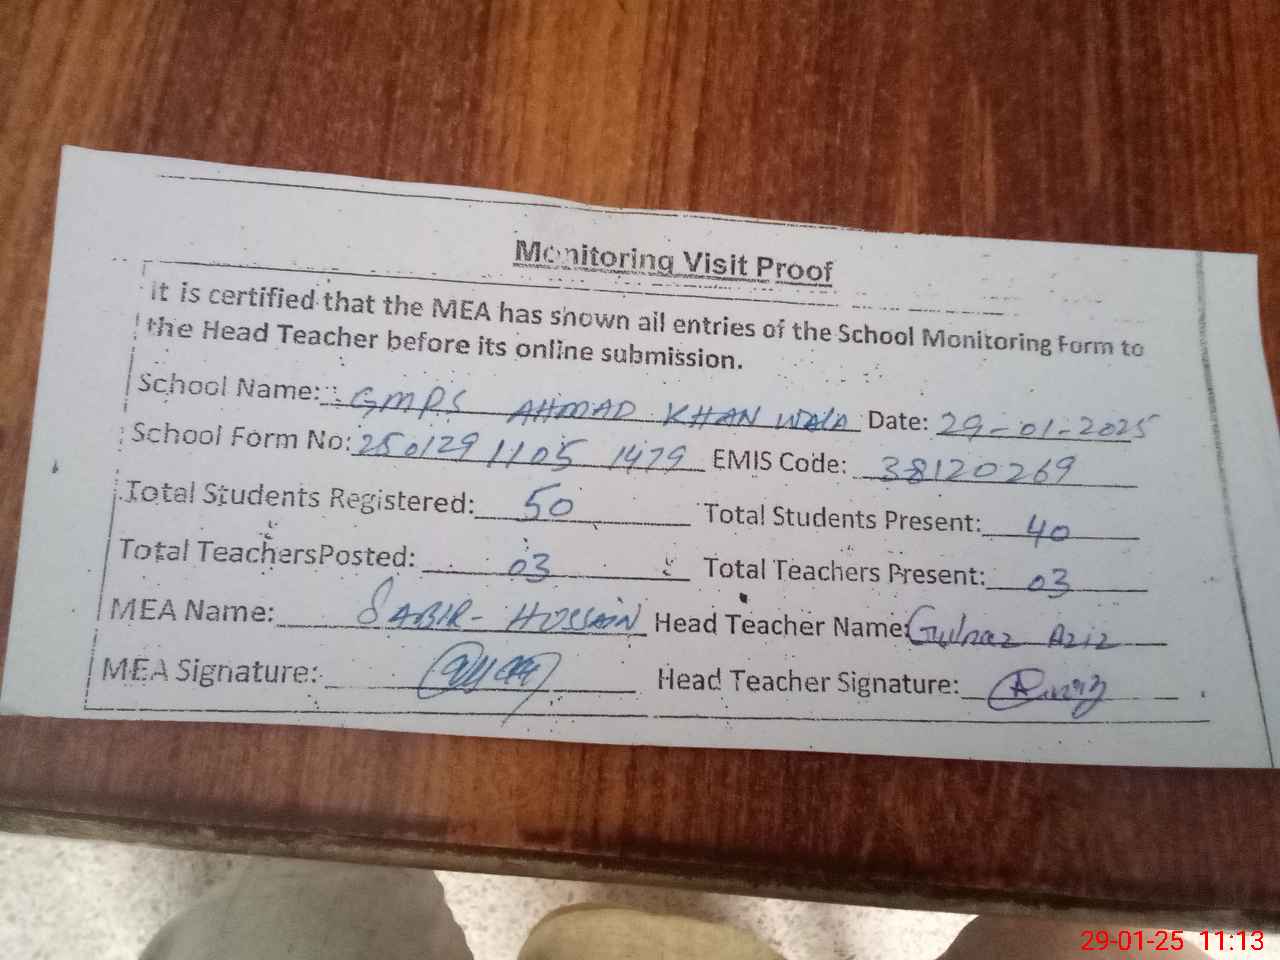 Monitoring Visit Proof
It is certified that the MEA has shown all entries of the School Monitoring Form to
the Head Teacher before its online submission.
School Name: GMPS AHMAD KHAN WALA Date: 29-01-2025
School Form No: 250129 1105 1479 EMIS Code: 38120269
Total Students Registered: 50 Total Students Present: 40
Total TeachersPosted: 03 Total Teachers Present: 03
MEA Name: SABIR-HUSSAIN Head Teacher Name: Gulnaz Aziz
MEA Signature: Head Teacher Signature:
29-01-25 11:13